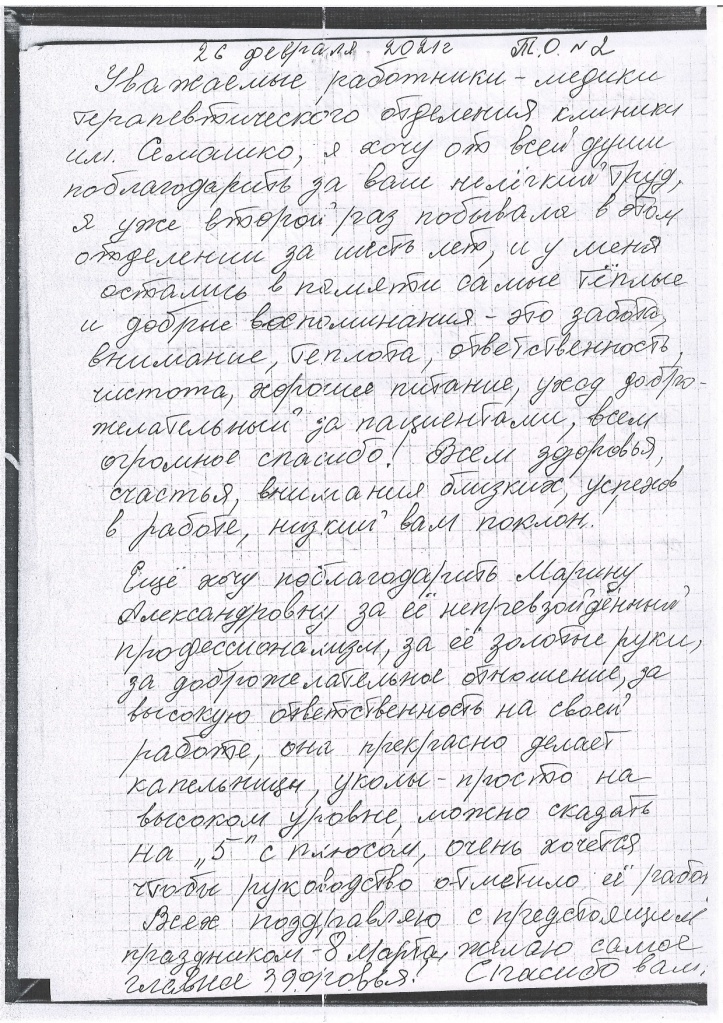 26 февраля 2021г Т.О. №2
Уважаемые работники – медики
терапевтического отделения клиники
им. Семашко, я хочу от всей души
поблагодарить за ваш нелёгкий труд,
я уже второй раз побывала в этом
отделении за шесть лет, и у меня
остались в памяти самые тёплые
и добрые воспоминания – это забота,
внимание, теплота, ответственность,
чистота, хорошее питание, уход добро-
желательный за пациентами, всем
огромное спасибо! Всем здоровья,
счастья, внимания близких, успехов
в работе, низкий вам поклон!
Ещё хочу поблагодарить Марину
Александровну за её непревзойдённый
профессионализм, за её золотые руки,
за доброжелательное отношение, за
высокую ответственность на своей
работе, она прекрасно делает
капельницы, уколы – просто на
высоком уровне, можно сказать
на „5" с плюсом, очень хочется
чтобы руководство отметило её работ
Всех поздравляю с предстоящим
праздником – 8 Марта, желаю самое
главное здоровья! Спасибо вам.